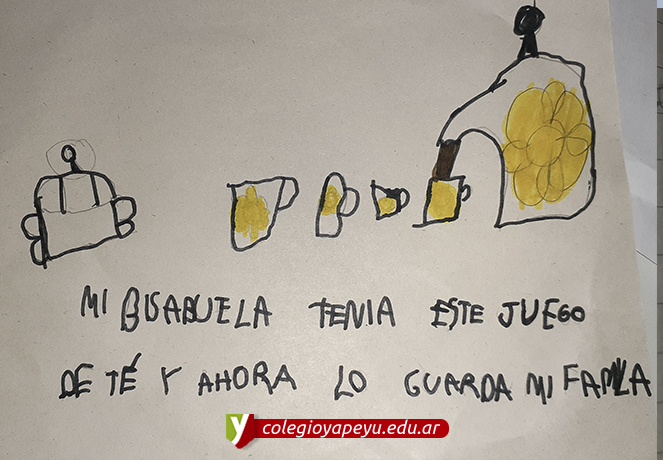 MI BISABUELA TENIA ESTE JUEGO
DE TÉ Y AHORA LO GUARDA MI FAMILA
y colegioyapeyu.edu.ar